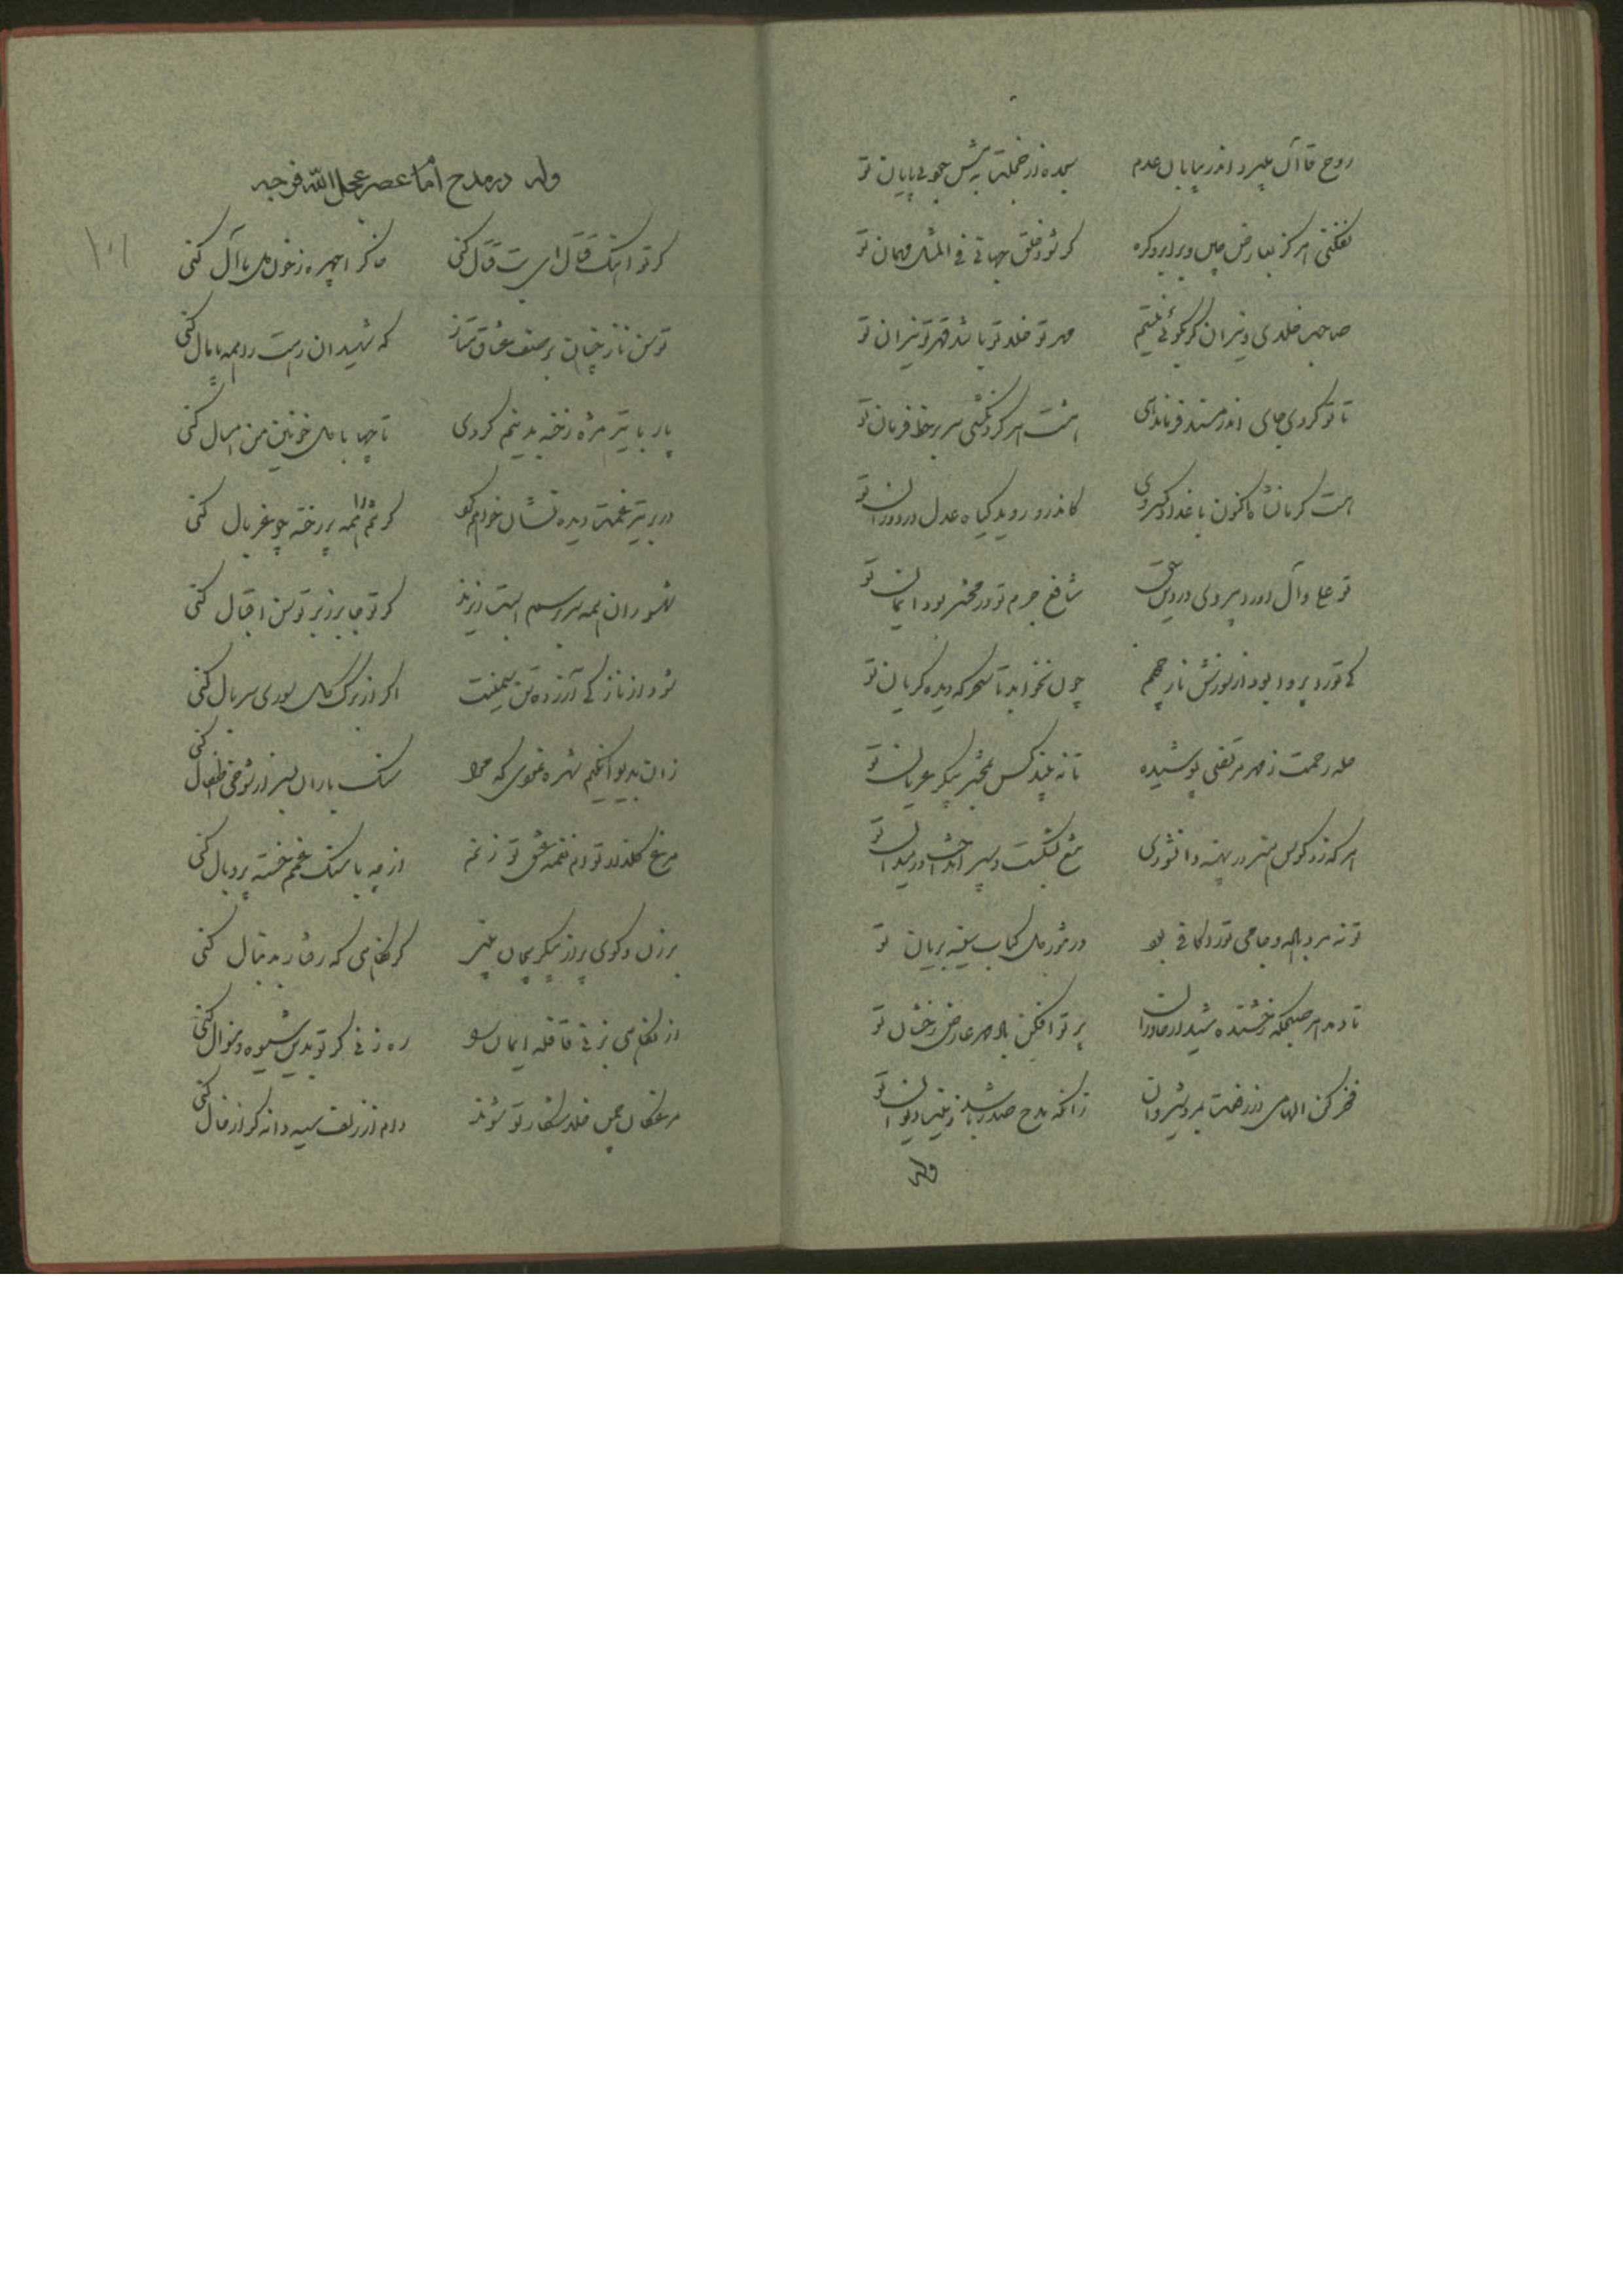 روح قاآن میرود اندر بیابان عدم
سجده در خجلت به پیش جود بی پایان تو
نفکنی هرگز بعارض چین و بر ابرو گره
گر شود خلق جهانی فی المثل مهمان تو
صاحب خلدی و نیران گر بگوئی نیستم
مهر تو خلد تو باشد قهر تو نیران تو
تا تو کردی جای اندر مسند فرماندهی
هشت هر گردنکشی سر بر خط فرمان تو
هست کرمانشاه اکنون با
کاندرو روید گیاه عدل در دوران تو
تو علی و آل او را پیروی در
شافع جرم تو در محشر بود ایمان تو
کی تو را پروا بود از سوزش نار جحیم
چون نخوابد تا سحرگه دیده گریان تو
حله رحمت ز مهر مرتضی پوشیده
تا نه بیند کس بمحشر پیکر عریان تو
هر که زد کوس هنر در پهنه دانشوری
تیغ بشکست و سپر انداخت در میدان تو
تو نه مرد باده و جامی تو را کافی بود
در خور مل کباب سینه بریان تو
تا دمد هر صبحگه رخشنده شید از خاوران
پرتو افکن باد مهر عارض رخشان تو
فخر کن الهامی
زانکه مدح صدر باشد زینت دیوان تو
وله
وله در مدح امام عصر عجل الله فرجه
۱۰۱
گر تو آهنگ قتال ای بت قتال کنی
چهره ز خون دل ما آل کنی
توسن ناز بر صف عشاق متاز
که شهیدان رهت را همه پامال کنی
پار با تیر مژه رخنه بدینم کردی
تا چها با دل خونین من امسال کنی
در بر تیر غمت دیده نشان خواهم کرد
گر تنم را همه پر رخنه چو غربال کنی
همه سر بر سم اسبت ریزند
گر تو جا بر زبر توسن اقبال کنی
شود از ناز کی آزرده تن سیمینت
اگر از برگ گل سوری سربال کنی
زان بدیوانگیم شهره نمودی که مرا
سنگ باران بسر از شوخی اطفال کنی
مرغ گلزار توام نغمه عشق تو زنم
از چه با سنگ غمم خسته پر و بال کنی
برزن و کوی پر از پیکر بیجان بینی
گر نگاهی که رفتار بدنبال کنی
از نگاهی بزنی قافله ایمان را
ره زنی گر تو بدین شیوه و منوال کنی
مرغکان چمن خلد شکار تو شوند
دام از زلف سیه دانه گر از خال کنی